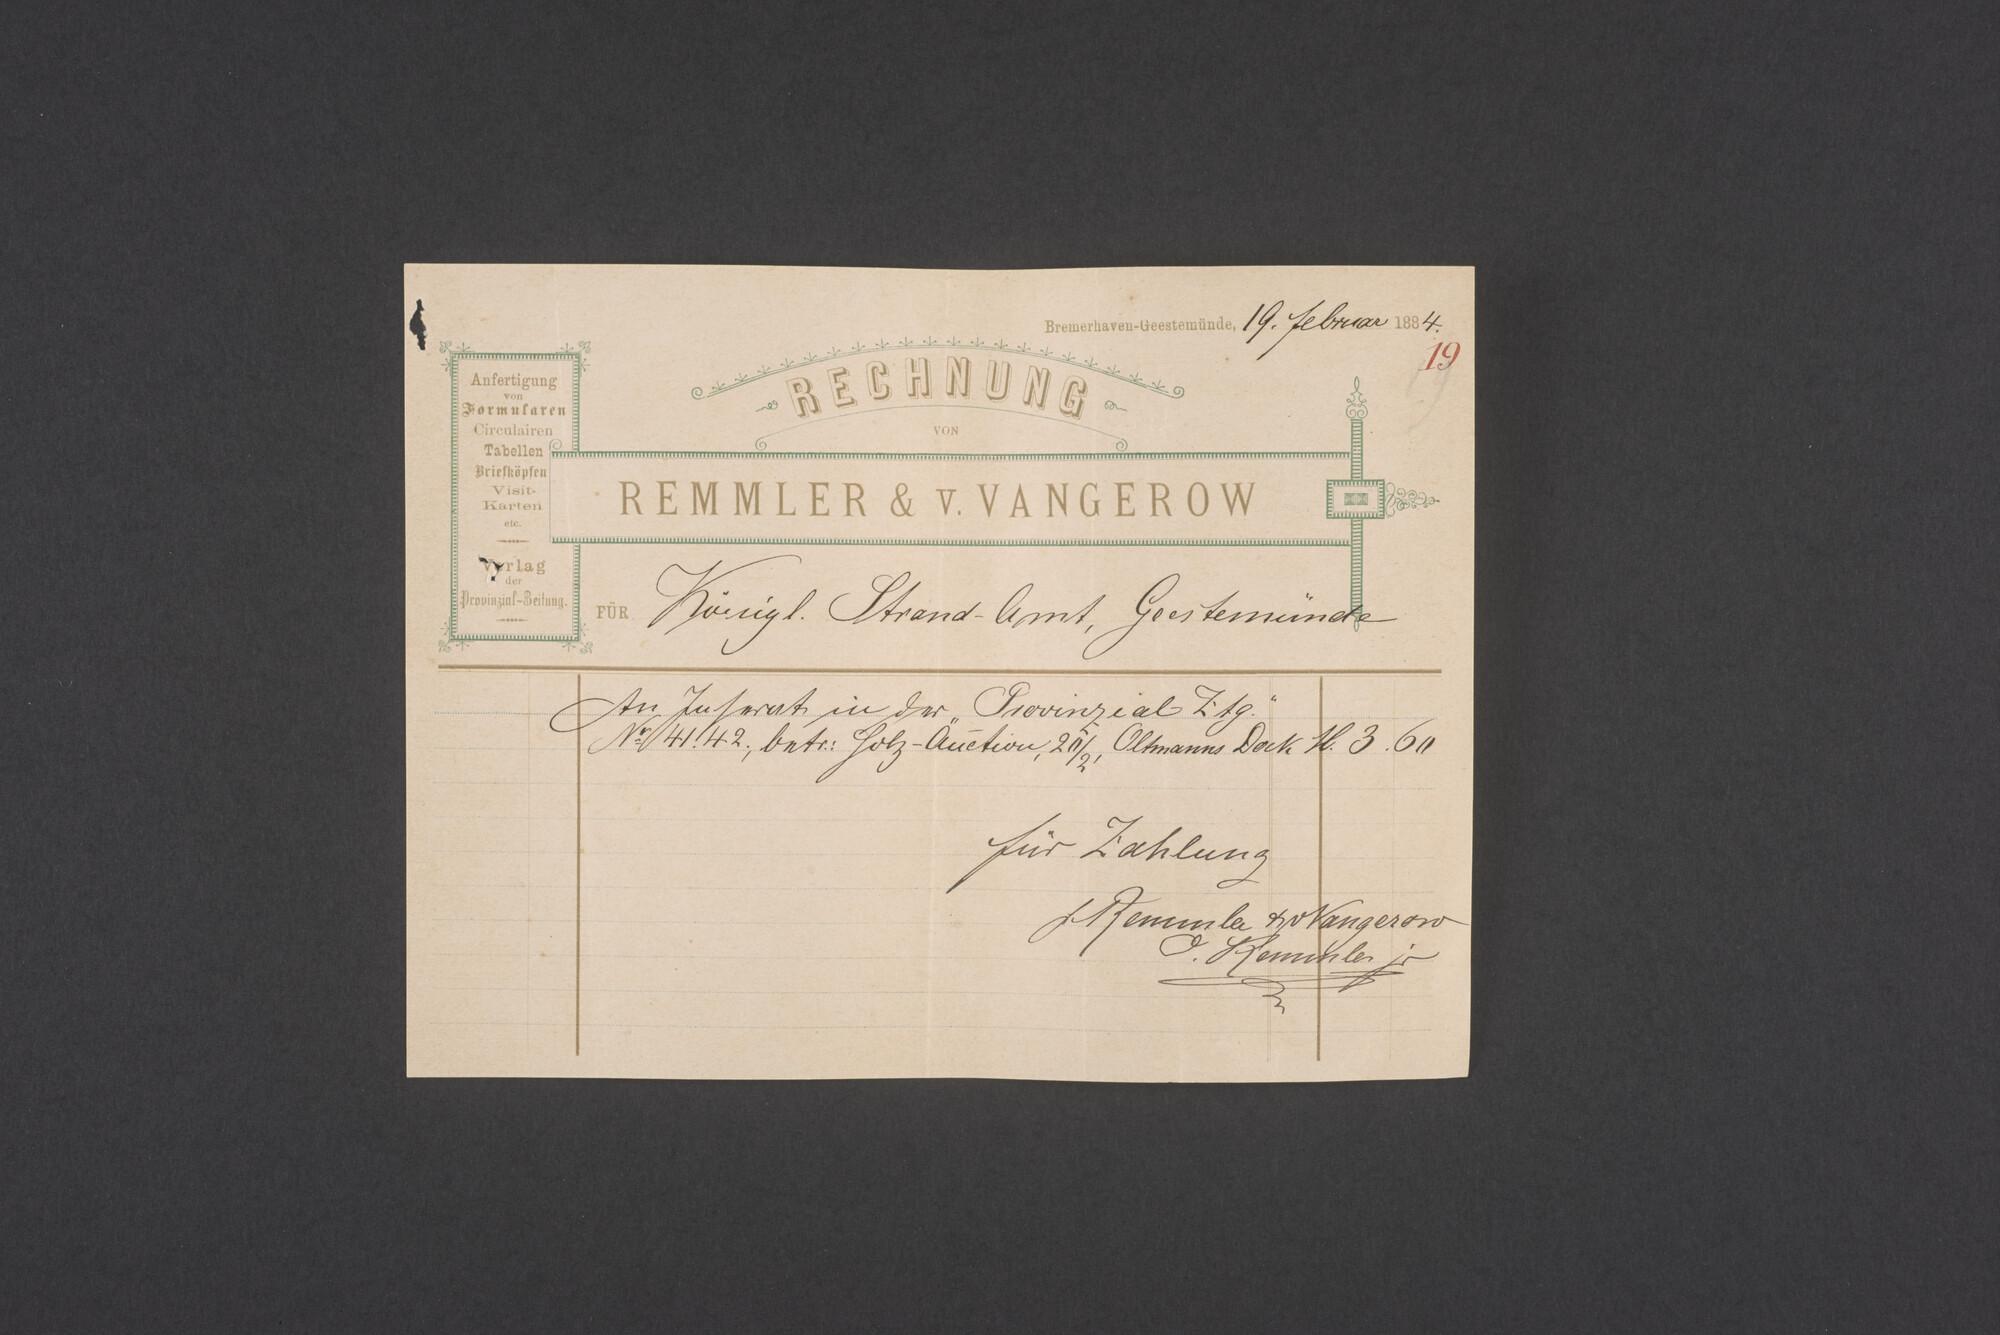 Bremerhaven-Geestemünde, 19. Februar 1884.
19
RECHNUNG
VON
REMMLER & v. VANGEROW
Anfertigung
von
Formularen
Circulairen
Tabellen
Briefköpfen
Visit-
Karten
etc.
Verlag
der
Provinzial-Zeitung.
FÜR Königl. Strand-Amt, Geestemünde
An Inserat in der „Provinzial Ztg."
No 41.42., betr: Holz-Auction, 20/2, Oltmanns Dock M. 3.60
für Zahlung
Remmler & v Vangerow
O. Remmler jr